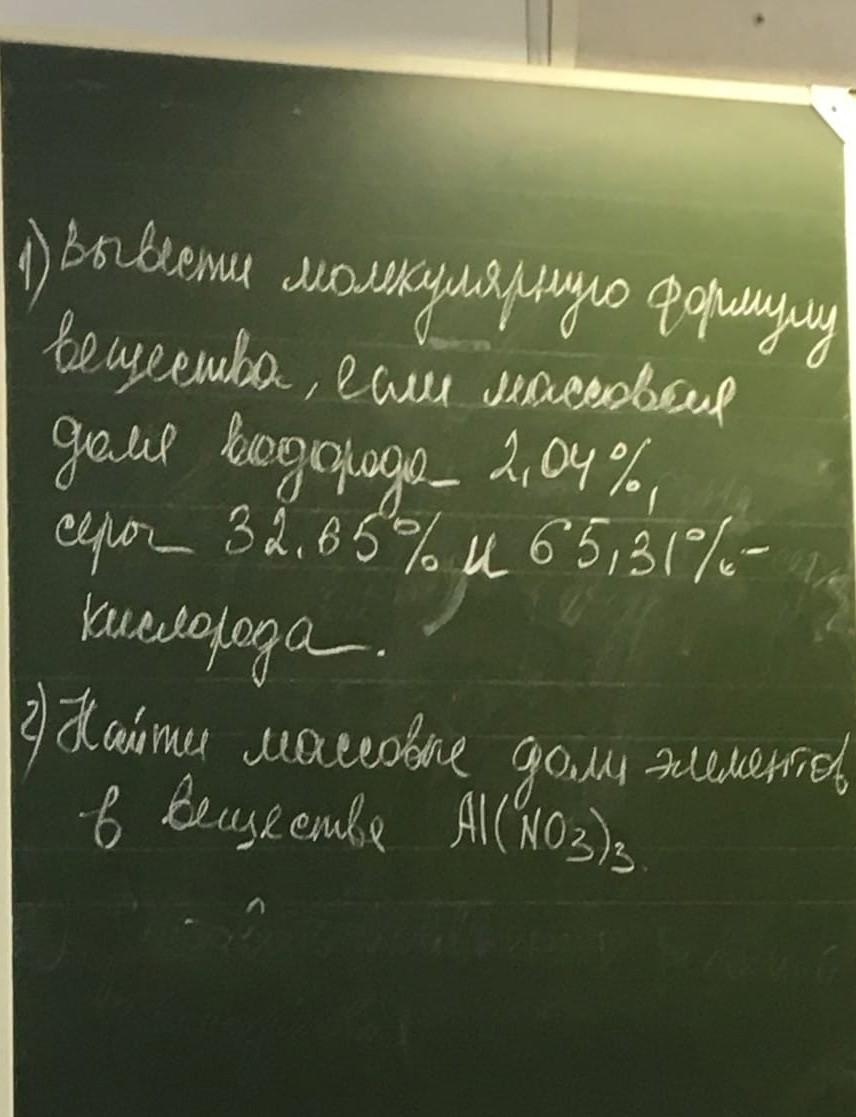 1) Вывести молкулярную формулу
вещества, если массовая
доля водорода 2,04%,
серы 32,65% и 65,31% -
кислорода.
2) Найти массовые доли элементов
в веществе Al(NO3)3.